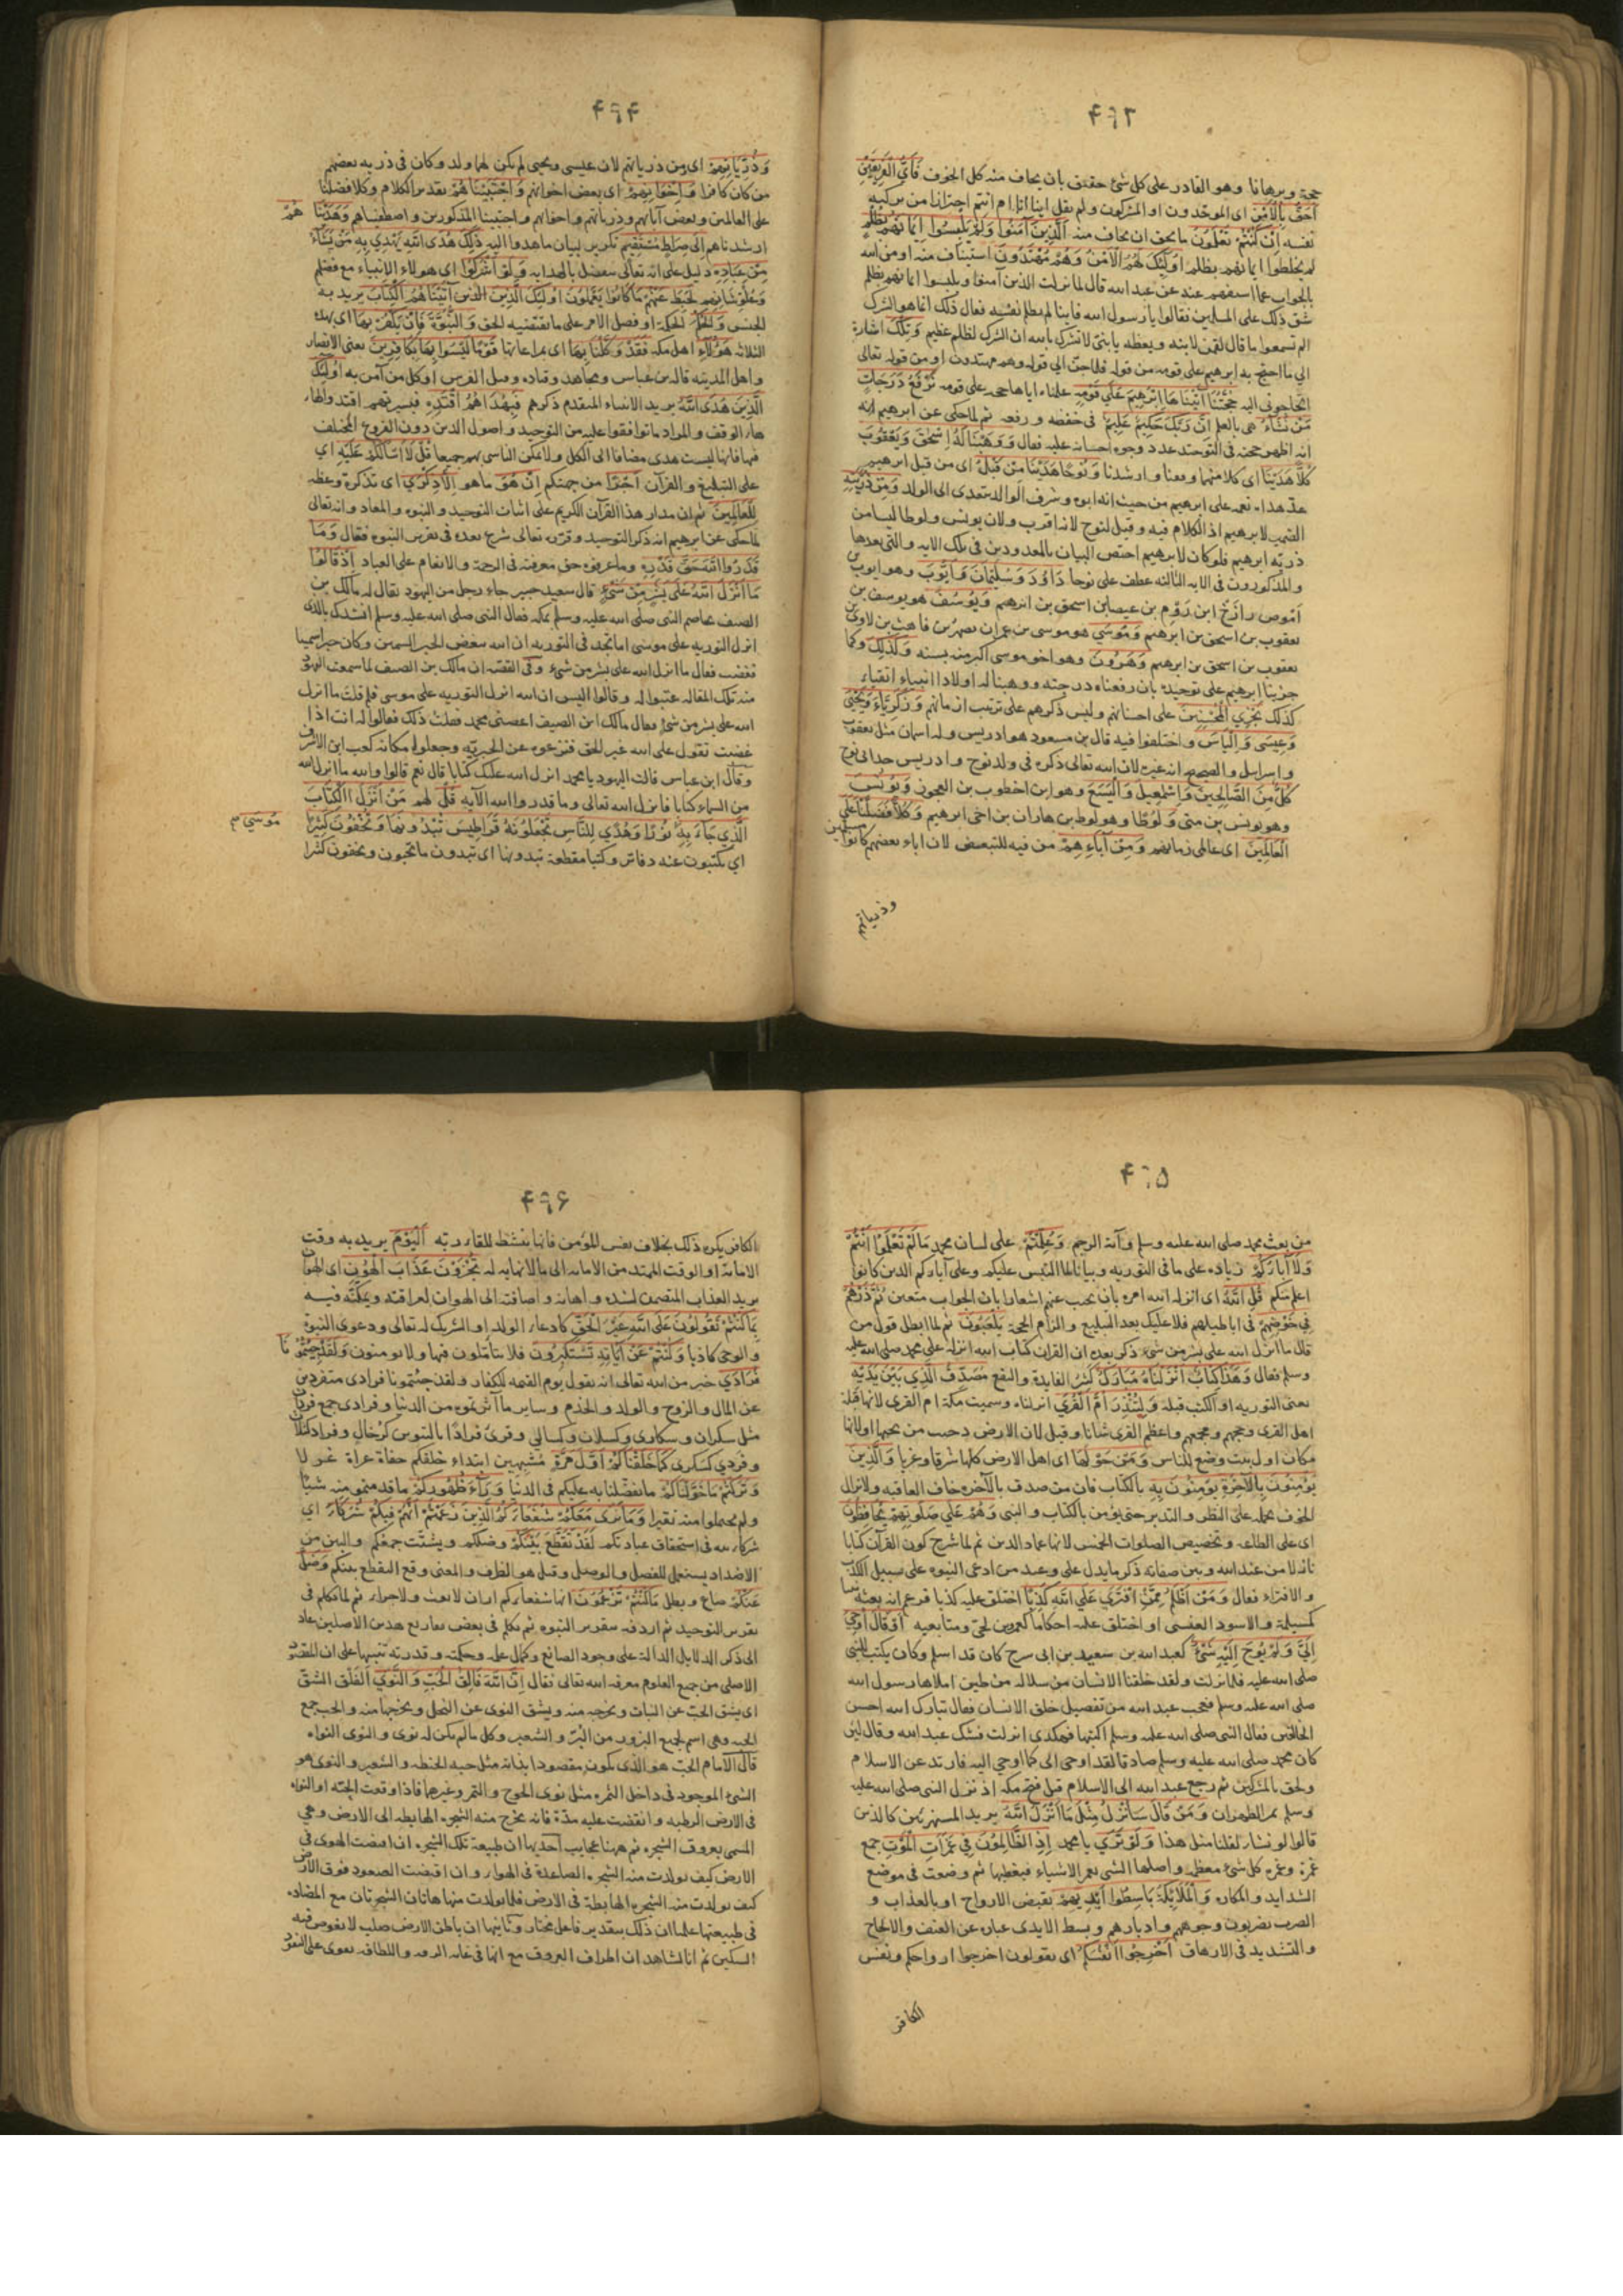 ۴۹۳
حجة وبرهانا وهو القادر على كل شئ حقيق بان يخاف منه كل الخوف فَأَيُّ الْفَرِيقَيْنِ
أَحَقُّ بِالْأَمْنِ اى الموحدون او المشركون ولم يقل اينا انا ام انتم احترازا من تزكية
نفسه إِنْ كُنْتُمْ تَعْلَمُونَ ما يحق ان يخاف منه الَّذِينَ آمَنُوا وَلَمْ يَلْبِسُوا إِيمَانَهُمْ بِظُلْمٍ
لم يخلطوا ايمانهم بظلم أُولَئِكَ لَهُمُ الْأَمْنُ وَهُمْ مُهْتَدُونَ استيناف منه او من الله
بالجواب عما استفهم عنه عن عبد الله قال لما نزلت الذين آمنوا ولم يلبسوا ايمانهم بظلم
شق ذلك على المسلمين فقالوا يا رسول الله فاينا لم يظلم نفسه فقال ذلك انما هو الشرك
الم تسمعوا ما قال لقمن لابنه ويعظه يا بنى لا تشرك بالله ان الشرك لظلم عظيم وَتِلْكَ اشارة
الى ما احتج به ابرهيم على قومه من قوله فلما جن الى قوله وهم مهتدون او من قوله تعالى
اتحاجونى اليه حُجَّتُنَا آتَيْنَاهَا إِبْرَهِيمَ عَلَى قَوْمِهِ علمناه اياها حجة على قومه نَرْفَعُ دَرَجَاتٍ
مَنْ نَشَاءُ هى بالعلم إِنَّ رَبَّكَ حَكِيمٌ عَلِيمٌ فى خفضه ورفعه ثم لما حكى عن ابرهيم انه
انه اظهر حجته فى التوحيد عدد وجوه احسانه عليه فقال وَوَهَبْنَا لَهُ إِسْحَقَ وَيَعْقُوبَ
كُلًّا هَدَيْنَا اى كلا منهما وفقنا وارشدنا وَنُوحًا هَدَيْنَا مِنْ قَبْلُ اى من قبل ابرهيم
عد هداه نعمة على ابرهيم من حيث انه ابوه وشرف الوالد يتعدى الى الولد وَمِنْ ذُرِّيَّتِهِ
الضمير لابرهيم اذ الكلام فيه وقيل لنوح لانه اقرب ولان يونس ولوطا ليسا من
ذريه ابرهيم فلو كان لابرهيم اختص البيان بالمعدودين فى تلك الايه والتى بعدها
والمذكورون فى الايه الثالثه عطف على نوحا دَاوُدَ وَسُلَيْمَانَ وَأَيُّوبَ وهو ايوب بن
اموص رازخ ابن روم بن عيصا بن اسحق بن ابرهيم وَيُوسُفَ هو يوسف بن
يعقوب بن اسحق بن ابرهيم وَمُوسَى هو موسى بن عمران بن يصهر بن قاهث بن لاوى بن
يعقوب بن اسحق بن ابرهيم وَهَرُونَ وهو اخو موسى اكبر منه بسنه وَكَذَلِكَ وكما
جزينا ابرهيم على توحيده بان رفعناه درجته ووهبنا له اولادا انبياء اتقياء
كَذَلِكَ نَجْزِي الْمُحْسِنِينَ على احسانهم وليس ذكرهم على ترتيب ازمانهم وَزَكَرِيَّاءَ وَيَحْيَى
وَعِيسَى وَإِلْيَاسَ واختلفوا فيه قال بن مسعود هو ادريس وله اسمان مثل يعقوب
واسرائيل والصحيح انه غيره لان الله تعالى ذكره فى ولد نوح وادريس جد ابى نوح
كُلٌّ مِنَ الصَّالِحِينَ وَإِسْمَعِيلَ وَالْيَسَعَ وهو ابن اخطوب بن العجوز وَيُونُسَ
وهو يونس بن متى وَلُوطًا وهو لوط بن هاران بن اخى ابرهيم وَكُلًّا فَضَّلْنَا عَلَى
الْعَالَمِينَ اى عالمى زمانهم وَمِنْ آبَاءِهِمْ من فيه للتبعيض لان اباء بعضهم كانوا مسلمين
وذرياتهم
۴۹۴
وَذُرِّيَّاتِهِمْ اى ومن ذرياتهم لان عيسى ويحيى لم يكن لهما ولد وكان فى ذريه بعضهم
من كان كافرا وَإِخْوَانِهِمْ اى بعض اخوانهم وَاجْتَبَيْنَاهُمْ تقدير الكلام وكلا فضلنا
على العالمين وبعض آبائهم وذرياتهم واخوانهم واجتبينا المذكورين واصطفيناهم وَهَدَيْنَاهُمْ
ارشدناهم إِلَى صِرَاطٍ مُسْتَقِيمٍ تكرير لبيان ما هدوا اليه ذَلِكَ هُدَى اللَّهِ يَهْدِي بِهِ مَنْ يَشَاءُ
مِنْ عِبَادِهِ دليل على انه تعالى متفضل بالهدايه وَلَوْ أَشْرَكُوا اى هولاء الانبياء مع فضلهم
وعلو شانهم لَحَبِطَ عَنْهُمْ مَا كَانُوا يَعْمَلُونَ أُولَئِكَ الَّذِينَ الذين آتَيْنَاهُمُ الْكِتَابَ يريد به
الجنس وَالْحُكْمَ الحكمة او فصل الامر على ما يقتضيه الحق وَالنُّبُوَّةَ فَإِنْ يَكْفُرْ بِهَا اى بهذه
الثلاثه هَؤُلَاءِ اهل مكه فَقَدْ وَكَّلْنَا بِهَا اى بمراعاتها قَوْمًا لَيْسُوا بِهَا بِكَافِرِينَ يعنى الانصار
واهل المدينه قاله بن عباس ومجاهد وقتاده وقيل الفرس او كل من آمن به أُولَئِكَ
الَّذِينَ هَدَى اللَّهُ يريد الانبياء المتقدم ذكرهم فَبِهُدَاهُمُ اقْتَدِهِ فبسيرتهم اقتد والهاء
هاء الوقف والمراد ما توافقوا عليه من التوحيد واصول الدين دون الفروع المختلف
فيها فانها ليست هدى مضافا الى الكل ولا يمكن التاسى بهم جميعا قُلْ لَا أَسْأَلُكُمْ عَلَيْهِ اى
على التبليغ والقرآن أَجْرًا من جهتكم إِنْ هُوَ ما هو إِلَّا ذِكْرَى اى تذكرة وعظه
لِلْعَالَمِينَ ثم ان مدار هذا القرآن الكريم على اثبات التوحيد والنبوه والمعاد وانه تعالى
لما حكى عن ابرهيم انه ذكر التوحيد وقرره تعالى شرع بعده فى تقرير النبوه فقال وَمَا
قَدَرُوا اللَّهَ حَقَّ قَدْرِهِ وما عرفوه حق معرفته فى الرحمة والانعام على العباد إِذْ قَالُوا
مَا أَنْزَلَ اللَّهُ عَلَى بَشَرٍ مِنْ شَيْءٍ قال سعيد جبير جاء رجل من اليهود يقال له مالك بن
الصيف يخاصم النبى صلى الله عليه وسلم بمكه فقال النبى صلى الله عليه وسلم انشدك بالذى
انزل التوريه على موسى اما تجد فى التوريه ان الله يبغض الحبر السمين وكان حبرا سمينا
فغضب فقال ما انزل الله على بشر من شئ وفى القصه ان مالك بن الصيف لما سمعت اليهود
منه تلك المقاله عتبوا له وقالوا اليس ان الله انزل التوريه على موسى فلم قلت ما انزل
الله على بشر من شئ فقال مالك ابن الصيف اغضبنى محمد فقلت ذلك فقالوا له انت اذا
غضبت تقول على الله غير الحق فنزعوه عن الحبريه وجعلوا مكانه كعب ابن الاشرف
وقال ابن عباس قالت اليهود يا محمد انزل الله عليك كتابا قال نعم قالوا والله ما انزل الله
من السماء كتابا فانزل الله تعالى وما قدروا الله الآية قُلْ لهم مَنْ أَنْزَلَ الْكِتَابَ
الَّذِي جَاءَ بِهِ نُورًا وَهُدًى لِلنَّاسِ تَجْعَلُونَهُ قَرَاطِيسَ تُبْدُونَهَا وَتُخْفُونَ كَثِيرًا
مُوسَى
اى يكتبون عنه دفاتر وكتبا مقطعة تبدونها اى تبدون ما تحبون وتخفون كثيرا
۴۹۵
من بعث محمد صلى الله عليه وسلم وآية الرجم وَعُلِّمْتُمْ على لسان محمد مَا لَمْ تَعْلَمُوا أَنْتُمْ
وَلَا آبَاؤُكُمْ زياده على ما فى التوريه وبيانا لما التبس عليكم وعلى آبائكم الذين كانوا
اعلم منكم قُلِ اللَّهُ اى انزله الله امره بان يجيب عنهم اشعارا بان الجواب متعين ثُمَّ ذَرْهُمْ
فِي خَوْضِهِمْ فى اباطيلهم فلا عليك بعد التبليغ والزام الحجة يَلْعَبُونَ ثم لما ابطل قول من
قال ما انزل الله على بشر من شئ ذكر بعده ان القران كتاب الله انزله على محمد صلى الله عليه
وسلم فقال وَهَذَا كِتَابٌ أَنْزَلْنَاهُ مُبَارَكٌ كثير الفايدة والنفع مُصَدِّقُ الَّذِي بَيْنَ يَدَيْهِ
يعنى التوريه او الكتب قبله وَلِتُنْذِرَ أُمَّ الْقُرَى انزلناه وسميت مكة ام القرى لانها قبلة
اهل القرى وحجهم ومجمعهم واعظم القرى شانا وقيل لان الارض دحيت من تحتها او لانها
مكان اول بيت وضع للناس وَمَنْ حَوْلَهَا اى اهل الارض كلها شرقا وغربا وَالَّذِينَ
يُؤْمِنُونَ بِالْآخِرَةِ يُؤْمِنُونَ بِهِ بالكتاب فان من صدق بالآخره خاف العاقبه ولا يزال
الخوف يحمله على النظر والتدبر حتى يؤمن بالكتاب والنبى وَهُمْ عَلَى صَلَوتِهِمْ يُحَافِظُونَ
اى على الطاعه وتخصيص الصلوات الخمس لانها عماد الدين ثم لما شرح كون القرآن كتابا
نازلا من عند الله وبين صفاته ذكر ما يدل على وعيد من ادعى النبوه على سبيل الكذب
والافتراء فقال وَمَنْ أَظْلَمُ مِمَّنِ افْتَرَى عَلَى اللَّهِ كَذِبًا اختلق عليه كذبا فزعم انه بعثه نبيا
كمسيلمة والاسود العنسى او اختلق عليه احكاما كعمرو بن لحى ومتابعيه أَوْ قَالَ أُوحِيَ
إِلَيَّ وَلَمْ يُوحَ إِلَيْهِ شَيْءٌ كعبد الله بن سعيد بن ابى سرح كان قد اسلم وكان يكتب للنبى
صلى الله عليه فلما نزلت ولقد خلقنا الانسان من سلاله من طين املاها رسول الله
صلى الله عليه وسلم فعجب عبد الله من تفصيل خلق الانسان فقال تبارك الله احسن
الخالقين فقال النبى صلى الله عليه وسلم اكتبها فهكذى انزلت فشك عبد الله وقال لئن
كان محمد صلى الله عليه وسلم صادقا لقد اوحى الى كما اوحى اليه فارتد عن الاسلام
ولحق بالمشركين ثم رجع عبد الله الى الاسلام قبل فتح مكه اذ نزل النبى صلى الله عليه
وسلم بمر الظهران وَمَنْ قَالَ سَأُنْزِلُ مِثْلَ مَا أَنْزَلَ اللَّهُ يريد المستهزئين كالذين
قالوا لو نشاء لقلنا مثل هذا وَلَوْ تَرَى يا محمد إِذِ الظَّالِمُونَ فِي غَمَرَاتِ الْمَوْتِ جمع
غمرة وغمره كل شئ معظمه واصلها الشى يغمر الاشياء فيغطيها ثم وضعت فى موضع
الشدايد والمكاره وَالْمَلَائِكَةُ بَاسِطُوا أَيْدِيهِمْ بقبض الارواح او بالعذاب و
الضرب يضربون وجوههم وادبارهم وبسط الايدى عباره عن العنف والالحاح
والتشديد فى الارهاق أَخْرِجُوا أَنْفُسَكُمُ اى يقولون اخرجوا ارواحكم ونفس
الكافر
۴۹۶
الكافر يكره ذلك بخلاف نفس المؤمن فانها تنشط للقاء ربه الْيَوْمَ يريد به وقت
الاماتة او الوقت الممتد من الاماته الى ما لا نهايه له تُجْزَوْنَ عَذَابَ الْهُونِ اى الهوان
يريد العذاب المتضمن لشده واهانه واضافته الى الهوان لعراقته وتمكنه فيه
بِمَا كُنْتُمْ تَقُولُونَ عَلَى اللَّهِ غَيْرَ الْحَقِّ كادعاء الولد او الشريك له تعالى ودعوى النبوة
والوحى كاذبا وَكُنْتُمْ عَنْ آيَاتِهِ تَسْتَكْبِرُونَ فلا تتأملون فيها ولا تومنون وَلَقَدْ جِئْتُمُونَا
فُرَادَى خبر من الله تعالى انه يقول يوم القيمه للكفار ولقد جئتمونا فرادى منفردين
عن المال والزوج والولد والخدم وساير ما آثرتموه من الدنيا وفرادى جمع فردان
مثل سكران وسكارى وكسلان وكسالى وقرئ فرادًا بالتنوين كرخال وفراد كثلاث
وفردى كسكرى كَمَا خَلَقْنَاكُمْ أَوَّلَ مَرَّةٍ مشبهين ابتداء خلقكم حفاة عراة غرلا
وَتَرَكْتُمْ مَا خَوَّلْنَاكُمْ ما تفضلنا به عليكم فى الدنيا وَرَاءَ ظُهُورِكُمْ ما قدمتمو منه شيئا
ولم تحملوا منه نقيرا وَمَا نَرَى مَعَكُمْ شُفَعَاءَكُمُ الَّذِينَ زَعَمْتُمْ أَنَّهُمْ فِيكُمْ شُرَكَاءُ اى
شركاء لله فى استحقاق عبادتكم لَقَدْ تَقَطَّعَ بَيْنَكُمْ وصلكم وتشتت جمعكم والبين من
الاضداد يستعمل للفصل والوصل وقيل هو الظرف والمعنى وقع التقطع بينكم وَضَلَّ
عَنْكُمْ ضاع وبطل مَا كُنْتُمْ تَزْعُمُونَ انها شفعاؤكم او ان لا بعث ولا جزاء ثم لما تكلم فى
تقرير التوحيد ثم اردفه بتقرير النبوه ثم تكلم فى بعض تفاريع هذين الاصلين عاد
الى ذكر الدلايل الدالة على وجود الصانع وكمال علمه وحكمته وقدرته تنبيها على ان المقصود
الاصلى من جميع العلوم معرفه الله تعالى فقال إِنَّ اللَّهَ فَالِقُ الْحَبِّ وَالنَّوَى الفلق الشق
اى يشق الحب عن النبات ويخرجه منه ويشق النوى عن النخل ويخرجها منه والحب جمع
الحبه وهى اسم لجميع البزور من البر والشعير وكل ما لم يكن له نوى والنوى النواه
قال الامام الحب هو الذى يكون مقصودا بذاته مثل حبه الحنطه والشعير والنوى هو
الشئ الموجود فى داخل الثمره مثل نوى الخوخ والتمر وغيرها فاذا وقعت الحبه او النواه
فى الارض الرطبه وانقضت عليه مدة فانه يخرج منه الشجره الهابطه الى الارض وهى
المسمى بعروق الشجره ثم ههنا عجايب احديها ان طبيعة تلك الشجره ان اقتضت الهوى فى
الارض كيف تولدت منه الشجره الصاعدة فى الهواء وان اقتضت الصعود فوق الارض
كيف تولدت منه الشجره الهابطة فى الارض فلما تولدت منها هاتان الشجرتان مع المضاده
فى طبيعتها علما ان ذلك بتقدير فاعل مختار وثانيها ان باطن الارض صلب لا تغوص فيه
السكين ثم انا نشاهد ان اطراف العروق مع انها فى غايه الرقه واللطافه تقوى على النفوذ